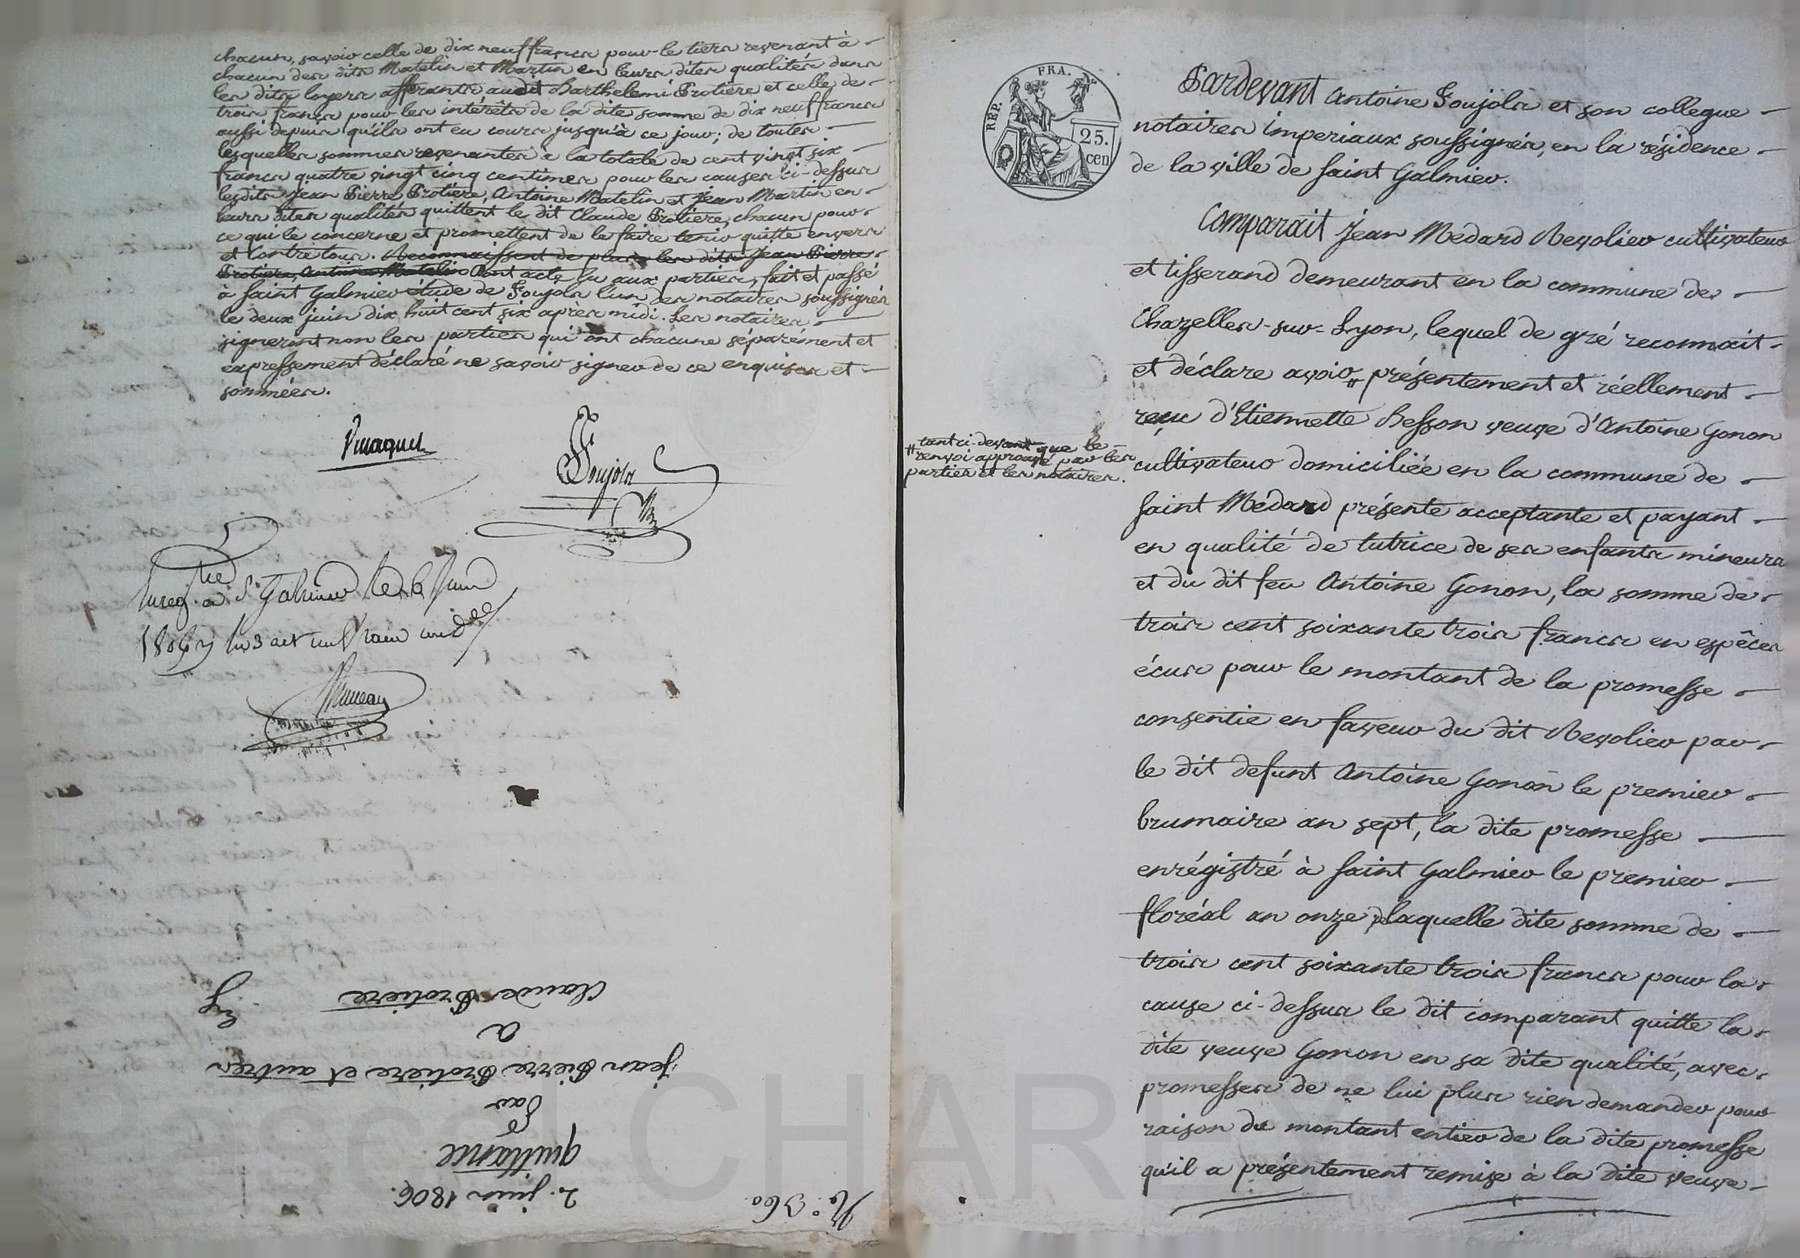 chacun, savoir celle de dix neuf francs pour le tiers revenant à
chacun des dits Matelin et Martin en leurs dites qualités dans
les dits loyers afférants audit Barthelemi Protière et celle de
trois francs pour les intérêts de la dite somme de dix neuf francs
aussi depuis qu'ils ont eu cours jusqu'à ce jour; de toutes
lesquelles sommes revenantes à la totale de cent vingt six
francs quatre vingt cinq centimes pour les causes ci-dessus
lesdits Jean Pierre Protière, Antoine Matelin et Jean Martin en
leurs dites qualités quittent le dit Claude Protière, chacun pour
ce qui le concerne et promettent de le faire tenir quitte envers
et contre tous. Reconnaissent de plus les dits Jean Pierre
Protière, Antoine Matelin Dont acte lu aux parties, fait et passé
à Saint Galmier étude de Poujols l'un des notaires soussignés
le deux juin dix huit cent six après midi. Les notaires
signeront non les parties qui ont chacune séparément et
expressément déclaré ne savoir signer de ce enquises et
sommées.
Poujols
Enreg.tré à St Galmier le 6 Juin
2. juin 1806.
quittance
Par
jean Pierre Protière et autres
a
Claude Protière
N.° 360
RÉP. FRA.
25.
cen
Pardevant Antoine Poujols et son collegue
notaires impériaux soussignés, en la résidence
de la ville de Saint Galmier.
Comparait Jean Médard Revolier cultivateur
et tisserand demeurant en la commune de
Chazelles-sur-Lyon, lequel de gré reconnait
et déclare avoir # présentement et réellement
reçu d'Etiennette Besson veuve d'Antoine Gonon
# tant ci-devant que le
renvoi approuvé par les
parties et les notaires.
cultivateur domiciliée en la commune de
Saint Médard présente acceptante et payant
en qualité de tutrice de ses enfants mineurs
et du dit feu Antoine Gonon, la somme de
trois cent soixante trois francs en espêces
écus pour le montant de la promesse
consentie en faveur du dit Revolier par
le dit defunt Antoine Gonon le premier
brumaire an sept, la dite promesse
enrégistré à Saint Galmier le premier
floréal an onze, laquelle dite somme de
trois cent soixante trois francs pour la
cause ci-dessus le dit comparant quitte la
dite veuve Gonon en sa dite qualité, avec
promesses de ne lui plus rien demander pour
raison du montant entier de la dite promesse
qu'il a présentement remise à la dite veuve
CHARLY